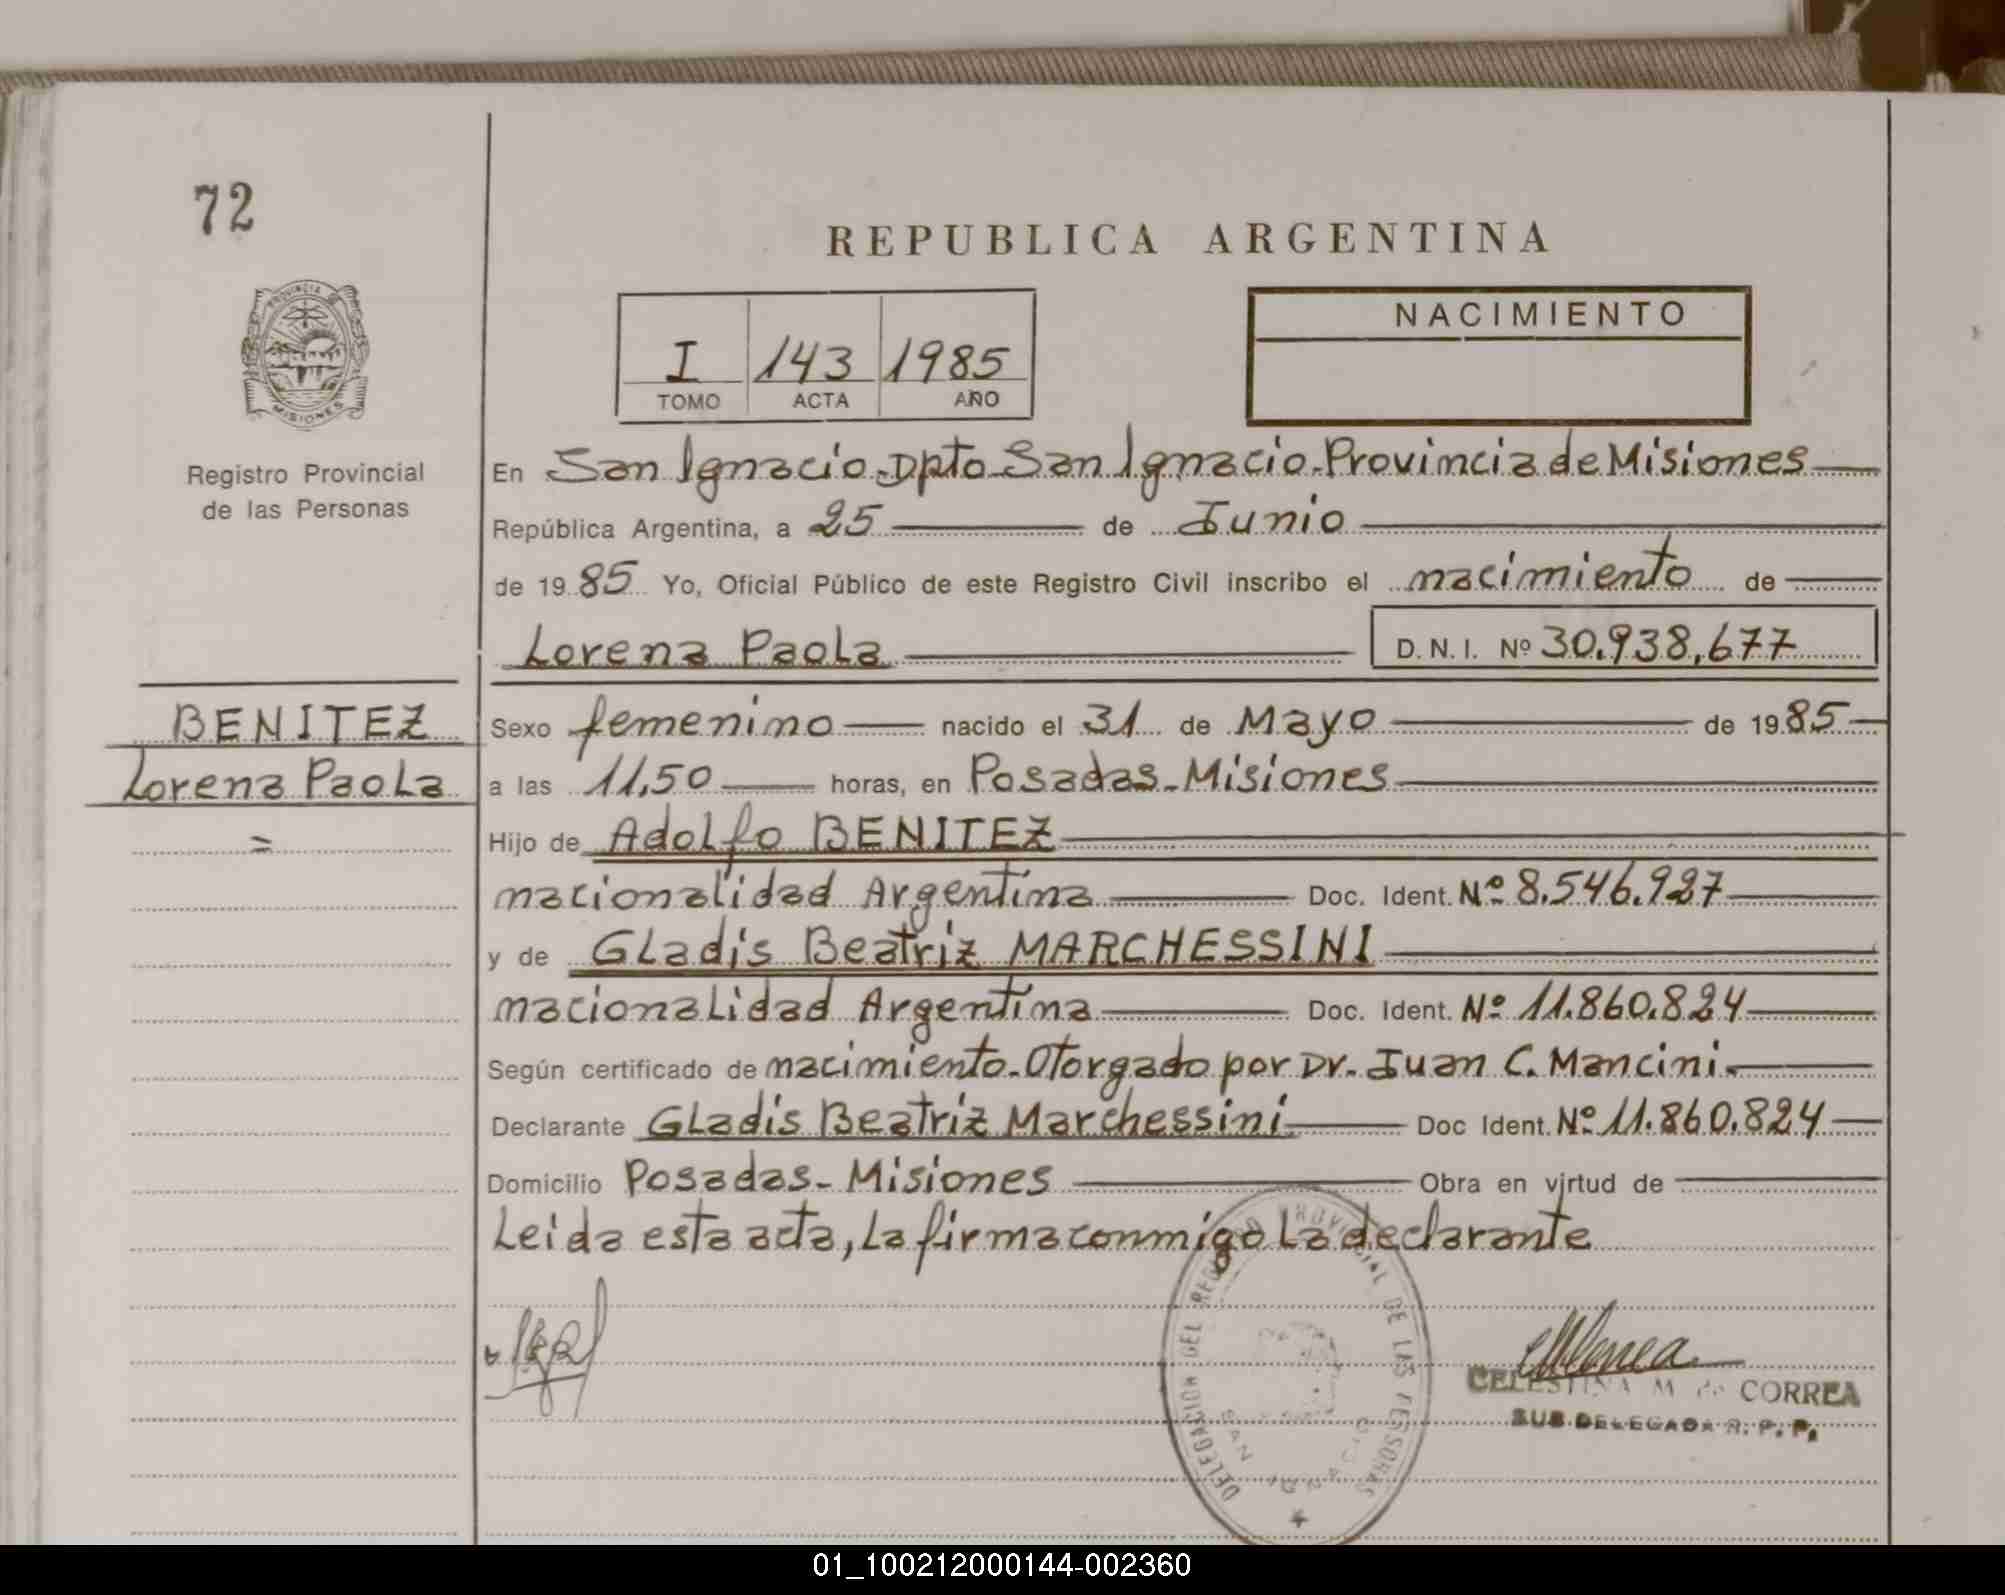 72
REPUBLICA ARGENTINA
NACIMIENTO
I 143 1985
TOMO ACTA AÑO
PROVINCIA DE
MISIONES
Registro Provincial
de las Personas
En San Ignacio-Dpto San Ignacio-Provincia de Misiones
República Argentina, a 25 de Junio
de 1985 Yo, Oficial Público de este Registro Civil inscribo el nacimiento de
Lorena Paola D.N.I. Nº 30.938,677
BENITEZ
Lorena Paola
=
Sexo femenino nacido el 31 de Mayo de 1985
a las 11,50 horas, en Posadas-Misiones
Hijo de Adolfo BENITEZ
nacionalidad Argentina Doc. Ident. Nº 8.546.927
y de Gladis Beatriz MARCHESSINI
nacionalidad Argentina Doc. Ident. Nº 11.860.824
Según certificado de nacimiento-Otorgado por Dr. Juan C. Mancini.
Declarante Gladis Beatriz Marchessini Doc Ident. Nº 11.860.824
Domicilio Posadas-Misiones Obra en virtud de
Leida esta acta, la firma conmigo la declarante
DELEGACION DEL REGISTRO PROVINCIAL DE LAS PERSONAS
SAN IGNACIO
CELESTINA M de CORREA
SUB DELEGADA R. P. P.
01_100212000144-002360